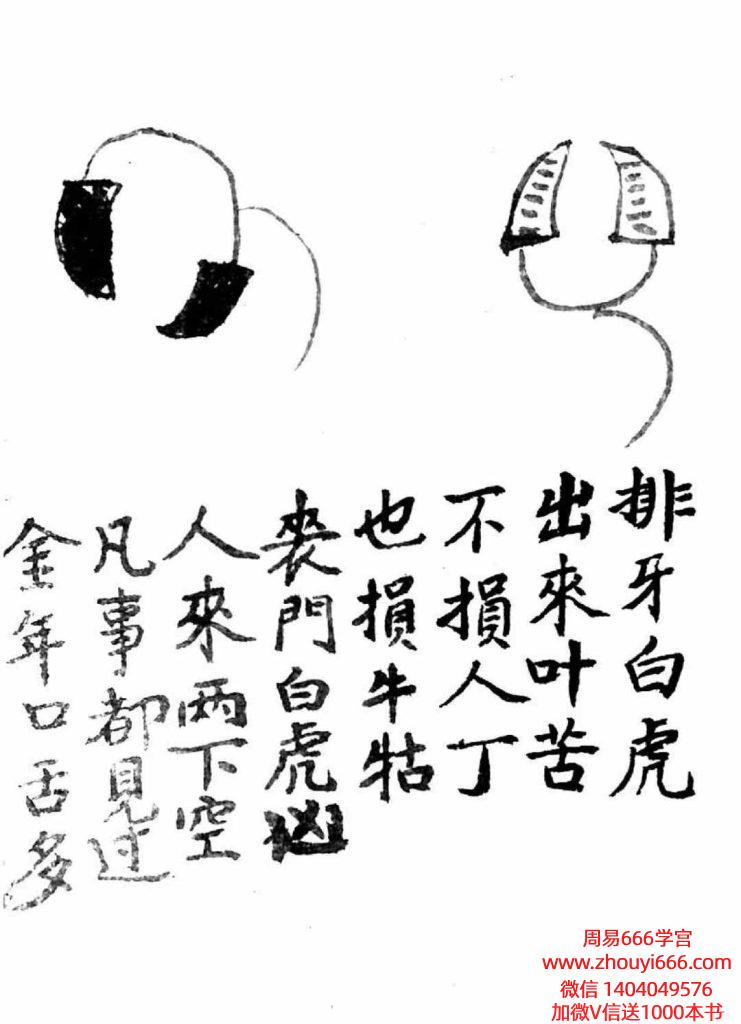 排牙白虎
出來叶苦
不損人丁
也損牛牯
喪門白虎凶
人來兩下空
凡事都見过
金年口舌多
周易666学宫
www.zhouyi666.com
微信 1404049576
加微V信送1000本书